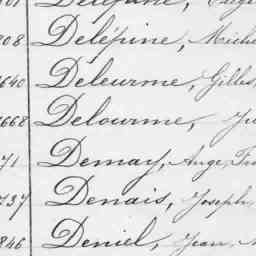 808 Delépine, Miche
640 Deleurme, Gilles,
668 Delourme, Ju
71 Demay, Ange, Fra
737 Denais, Joseph,
846 Deniel, Jean,